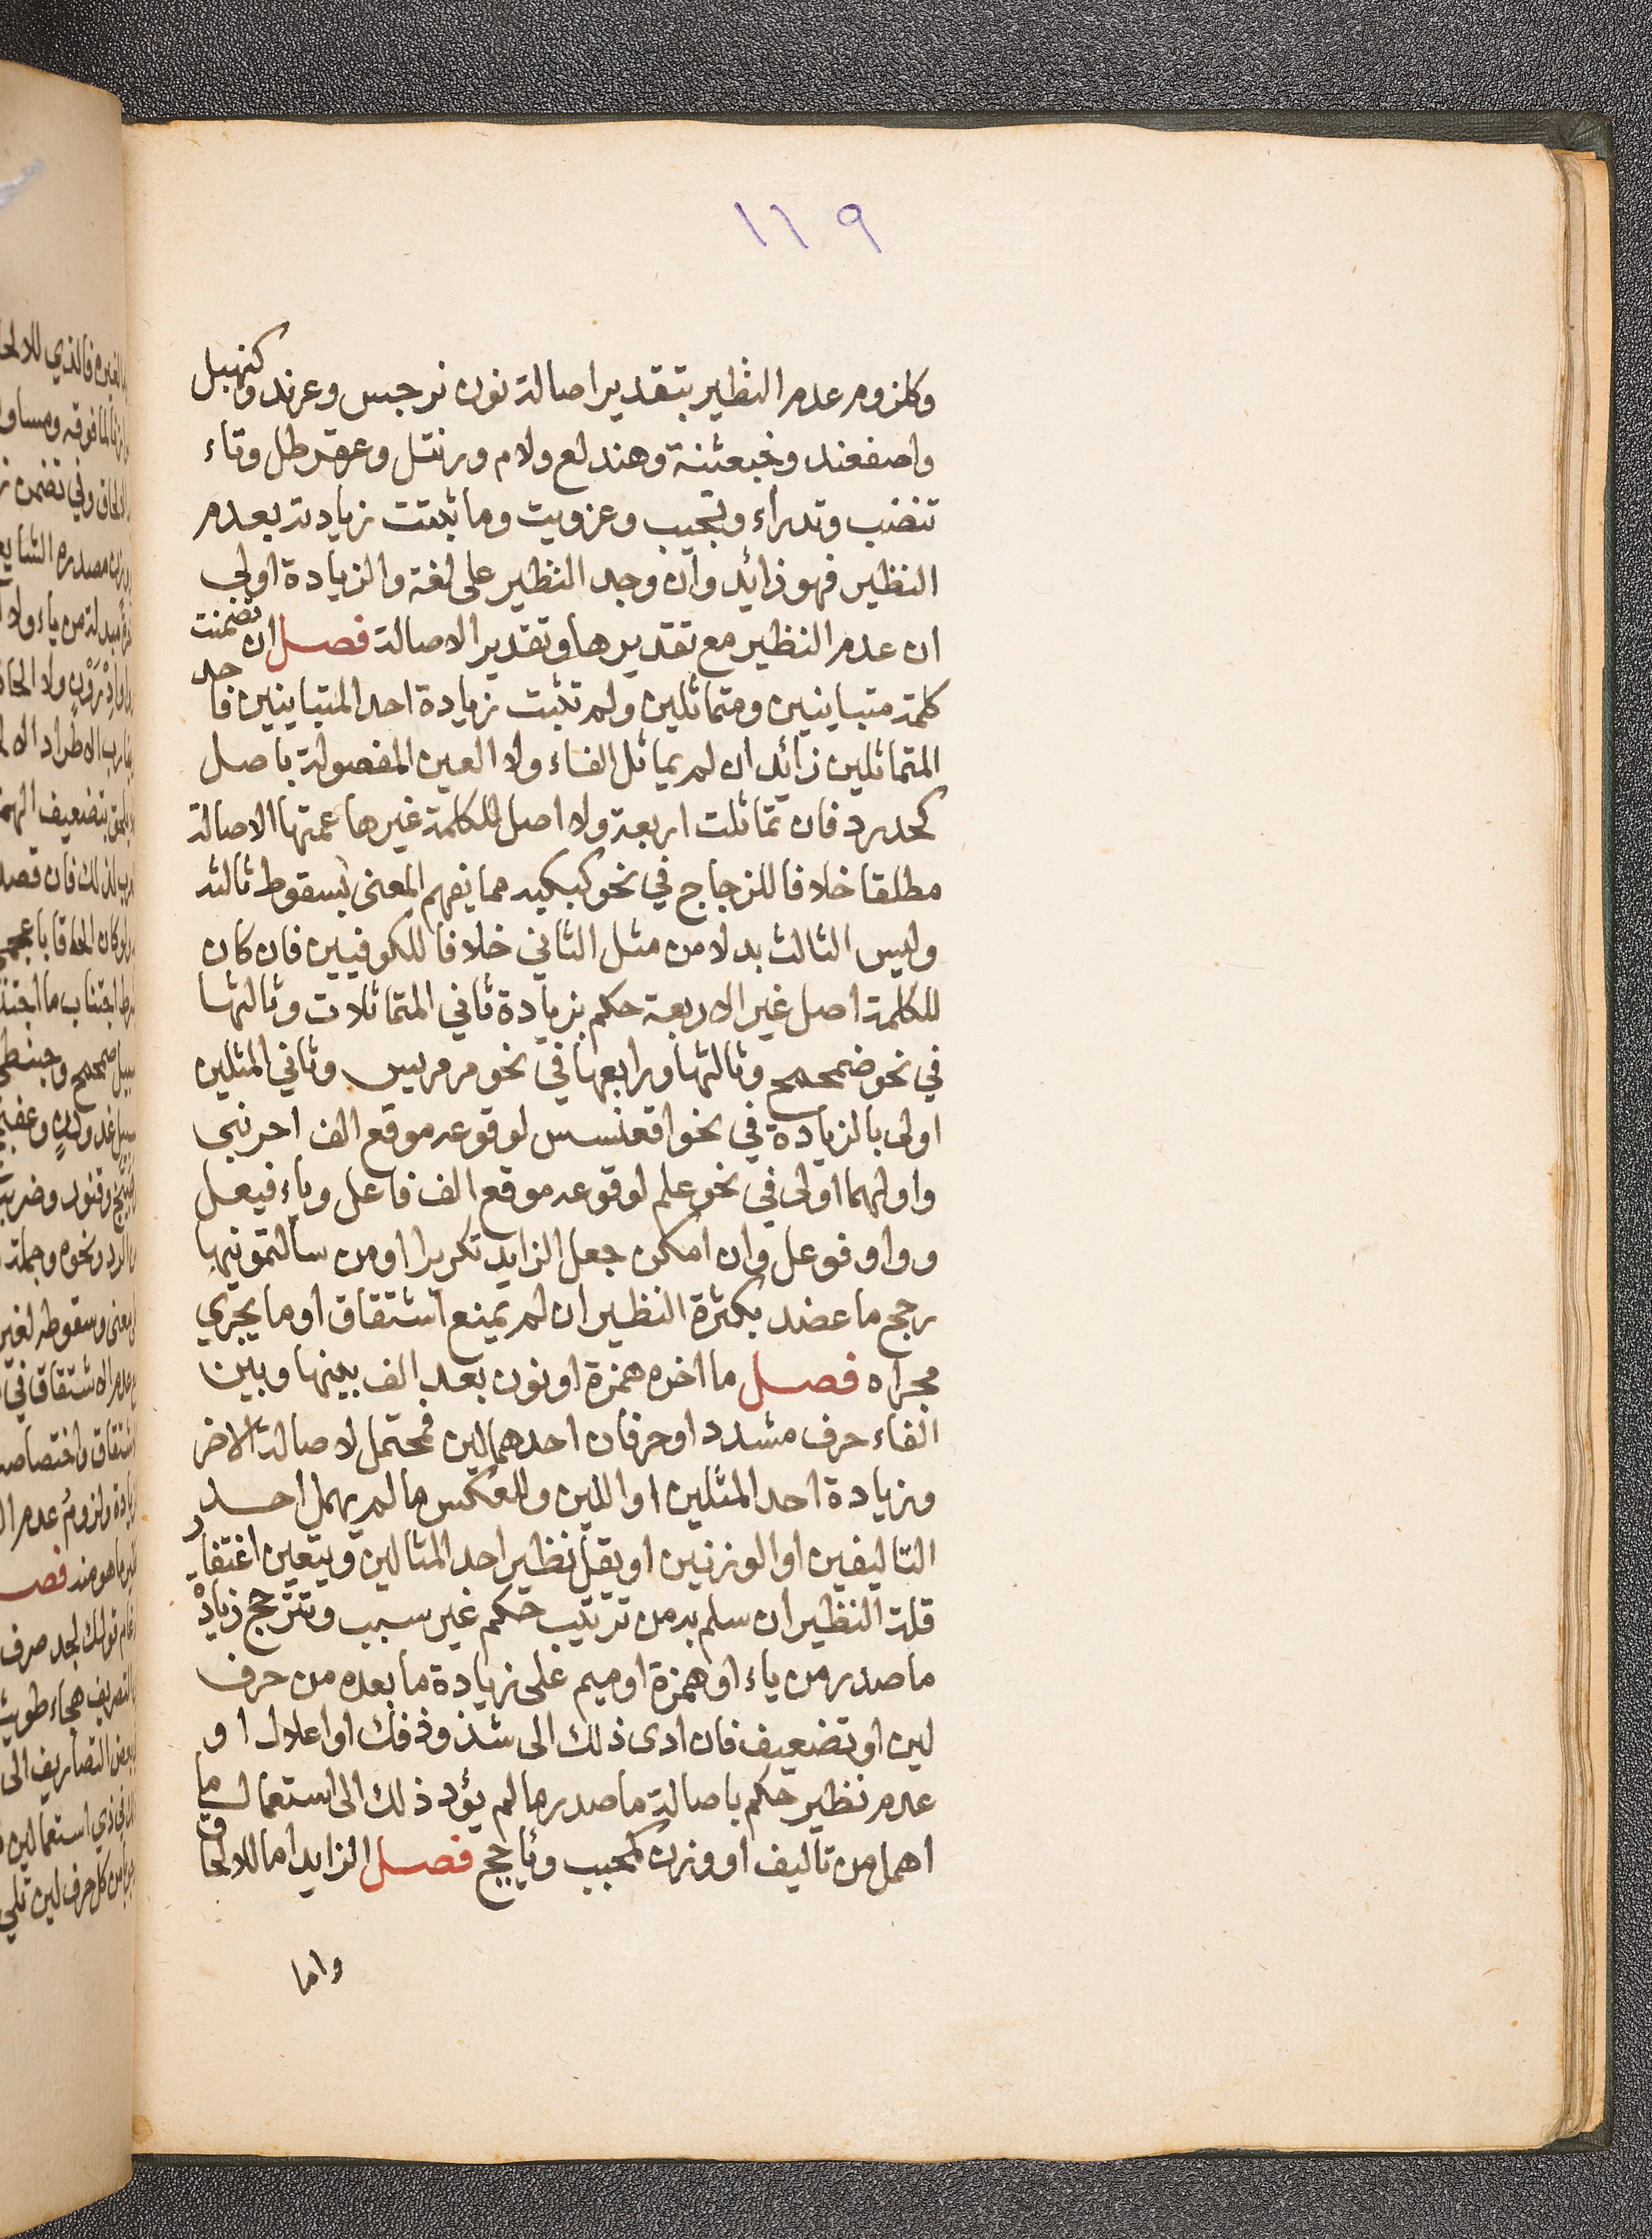 ١١٩
وكلزوم عدم النظير بتقدير اصالة نون نرجس وعرند وكنهبل
واصفعند وخبعثنة وهندلع ولام ورنتل وعقرطل وتاء
تنضب وتدراء وتجيب وعزويت وما ثبتت زيادته بعدم
النظير فهو زائد وان وجد النظير على لغة والزيادة اولى
ان عدم النظير مع تقديرها وتقدير الاصالة فصل ان تضمنت
كلمة متباينين ومتماثلين ولم تثبت زيادة احد المتباينين فاحد
المتماثلين زائد ان لم يماثل الفاء ولا العين المفصولة باصل
كحدرد فان تماثلت اربعة ولا اصل للكلمة غيرها عمتها الاصالة
مطلقا خلافا للزجاج في نحو كبكبه مما يفهم المعنى بسقوط ثالثه
وليس الثالث بدلا من مثل الثاني خلافا للكوفيين فان كان
للكلمة اصل غير الاربعة حكم بزيادة ثاني المتماثلات وثالثها
في نحو صمحمح وثالثها ورابعها في نحو مرمريس وثاني المثلين
اولى بالزيادة في نحو اقعنسس لوقوعه موقع الف احرنبى
واولهما اولى في نحو علم لوقوعه موقع الف فاعل وياء فيعل
وواو فوعل وان امكن جعل الزايد تكريرا او من سألتمونيها
رجح ما عضد بكثرة النظير ان لم يمنع اشتقاق او ما يجري
مجراه فصل ما اخره همزة او نون بعد الف بينها وبين
الفاء حرف مشدد او حرفان احدهما لين فمحتمل لاصالة الاخر
وزيادة احد المثلين او اللين وللعكس ما لم يهمل احد
التاليفين او الوزنين او يقل نظير احد المثالين ويتعين اغتفار
قلة النظير ان سلم به من ترتيب حكم غير سبب وتترجح زيادة
ما صدر من ياء او همزة او ميم على زيادة ما بعده من حرف
لين او تضعيف فان ادى ذلك الى شذوذ فك او اعلال او
عدم نظير حكم باصالة ما صدر ما لم يؤد ذلك الى استعمال ما
اهمل من تاليف او وزن كمحبب ويأجج فصل الزايد اما للالحاق
واما